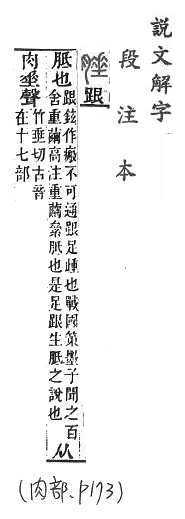 說文解字
段注本
腄 跟
胝也 跟鉉作瘢不可通跟足踵也戰國策墨子聞之百
舍重繭高注重繭絫胝也是足跟生胝之說也 从
肉𡍮聲 竹垂切古音
在十七部
(肉部、P173)